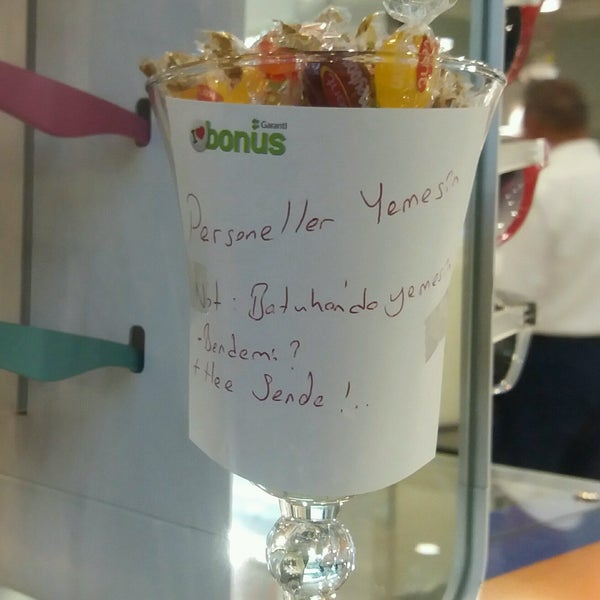 Garanti
bonus
Personeller Yemesin
Not : Batuhan'da yemesin
- Bendemi ?
+ Hee Sende !..